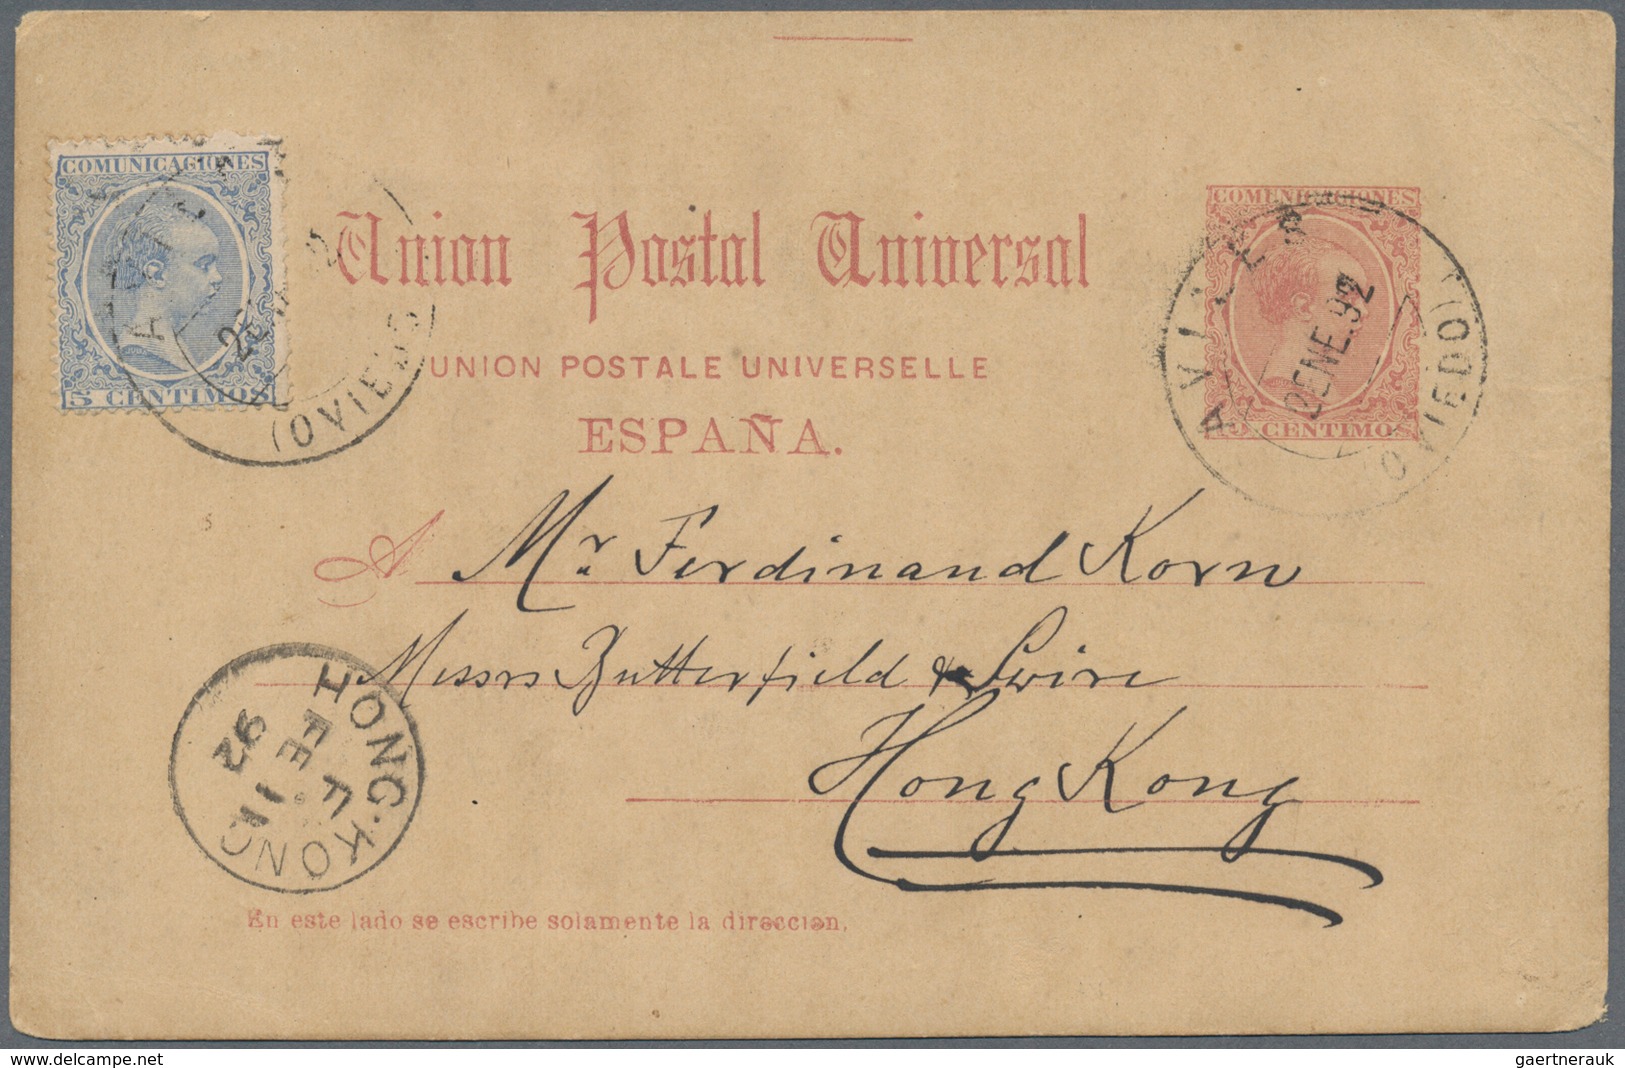 COMUNICACIONES
5 CENTIMOS
(OVIEDO)
Union Postal Universal
UNION POSTALE UNIVERSELLE
ESPAÑA.
COMUNICACIONES
CENTIMOS
ENE. 92
(OVIEDO)
A Mr Ferdinand Korn
Messrs Butterfield & Swire
Hong Kong
HONG·KONG
F
FE 11
92
En este lado se escribe solamente la direccion.
www.delcampe.net
gaertnerauk